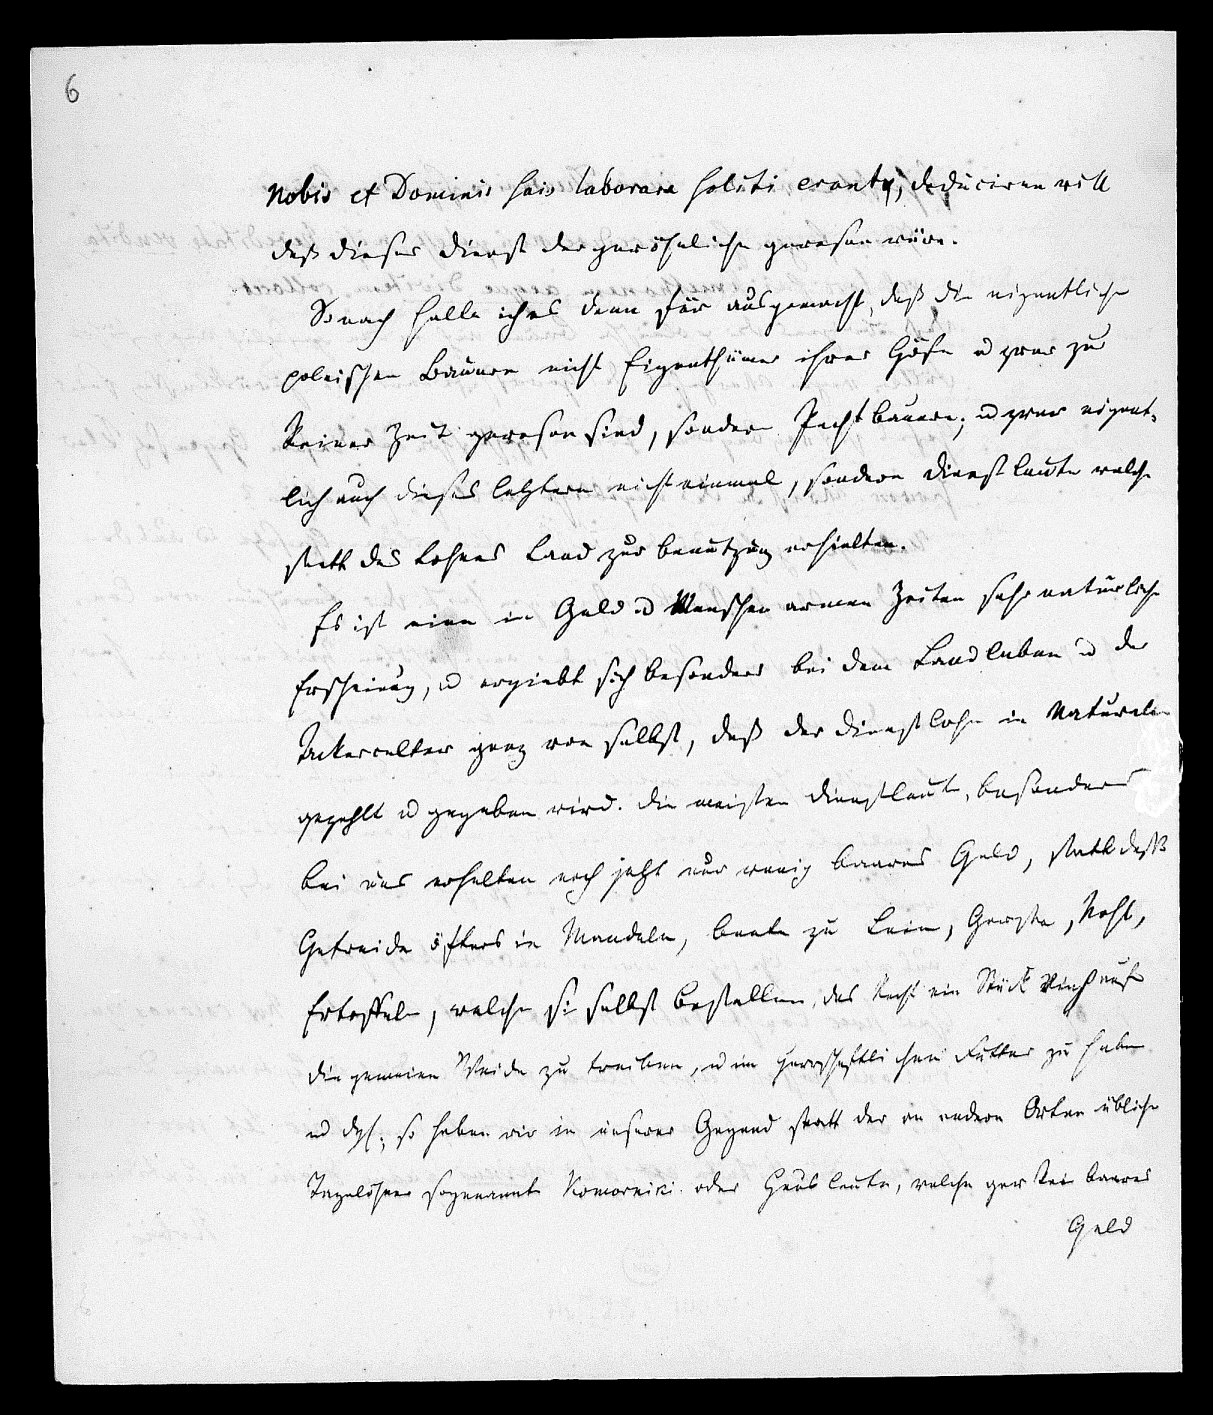 6
nobis et Dominis suis laborare soliti erant, deduciren will
daß dieses Dienst der gewöhnliche gewesen wäre.
Sonach halte ich es denn für ausgemacht, daß die eigentliche
polnischen Bauern nicht Eigenthümer ihrer Höfe u zwar zu
keiner Zeit gewesen sind, sondern Pachtbauern; u zwar eigent-
lich auch dieses letztere nicht einmal, sondern Dienstleute welche
statt des Lohnes Land zur benutzung erhielten.
Es ist eine in Geld u Menschen armen Zeiten sehr natürliche
Erscheinung, u ergiebt sich besonders bei dem Landleben u der
Ackercultur ganz von selbst, daß der Dienstlohn in Naturalen
gezahlt u gegeben wird. Die meisten Dienstleute, besonders
bei uns erhalten noch jetzt nur wenig baares Geld, statt deß
Getreide öfters in Mandeln, beete zu Lein, Gerste, Kohl,
Ertoffeln, welche sie selbst bestellen, das Recht ein Stück Vieh auf
die gemeine Weide zu treiben, u im herrschaftlichen Futter zu haben
u dgl; so haben wir in unserer Gegend statt der an andern Orten übliche
Tagelöhner sogenannte Komornici oder Hausleute, welche gar kein baares
Geld